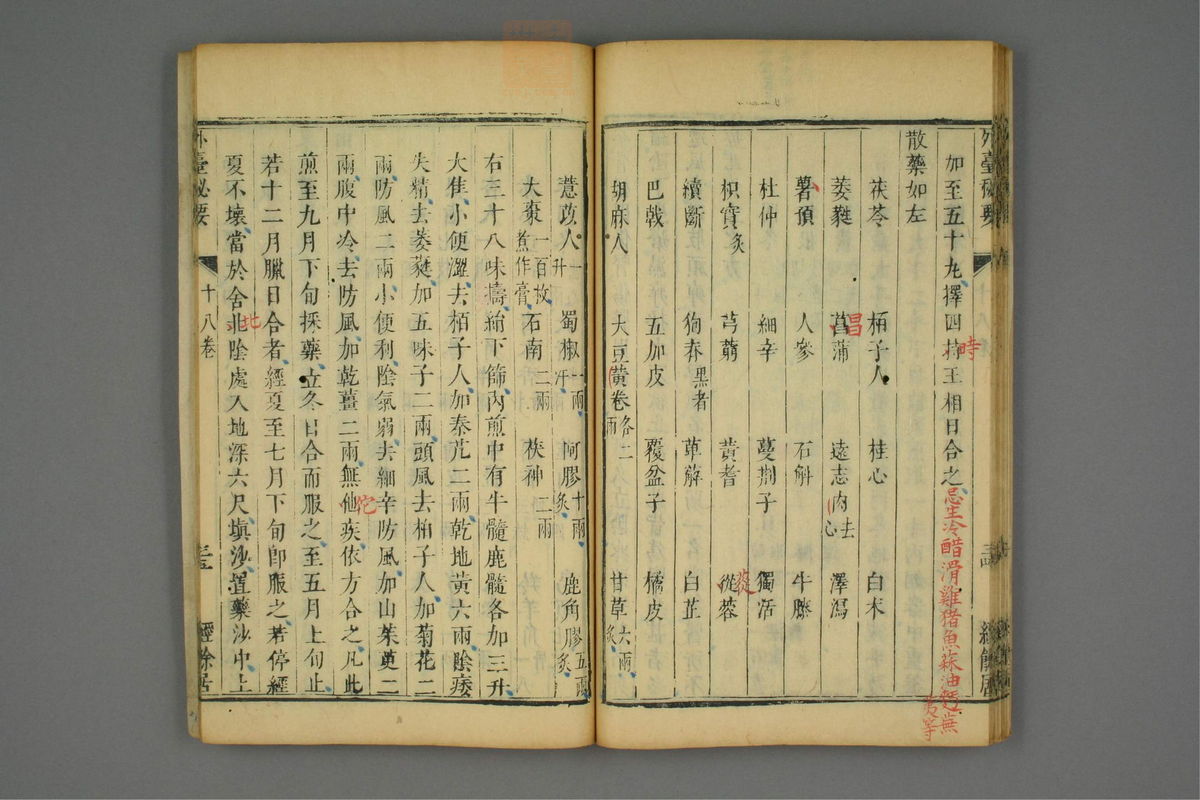 外臺秘要
加至五十九擇四時王相日合之
時
忌生冷醋滑雞猪魚蒜油麪蕪
荑等
散藥如左
茯苓 栢子人 桂心 白朮
萎蕤 菖蒲 遠志去心 澤瀉
昌
薯預 人參 石斛 牛膝
杜仲 細辛 蔓荆子 獨活
枳實炙 芎藭 黃耆 從蓉
蓯
續斷 狗脊黑者 萆解 白芷
巴戟 五加皮 覆盆子 橘皮
胡麻人 大豆黃卷各二兩 甘草六兩炙
薏苡人一升 蜀椒一兩汗 阿膠十兩炙 鹿角膠五兩炙
大棗一百枚煮作膏 石南二兩 茯神二兩
右三十八味擣絹下篩內煎中有牛髓鹿髓各加三升
大隹小便澀去栢子人加秦艽二兩乾地黃六兩陰痿
失精去萎蕤加五味子二兩頭風去柏子人加菊花二
兩防風二兩小便利陰氣弱去細辛防風加山茱萸二
兩腹中冷去防風加乾薑二兩無他疾依方合之凡此
佗
煎至九月下旬採藥立冬日合而服之至五月上旬止
若十二月臘日合者經夏至七月下旬卽服之若停經
夏不壞當於舍北陰處入地深六尺塡沙置藥沙中上
北
外臺秘要 十八卷 經餘居